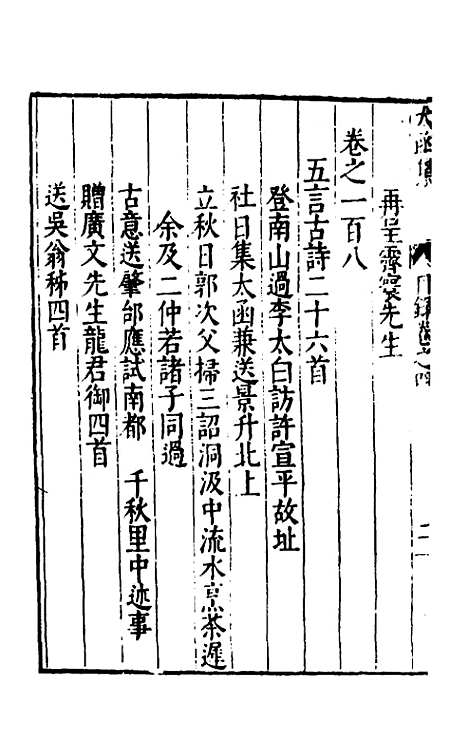 再呈霽寰先生
卷之一百八
五言古詩二十六首
登南山過李太白訪許宣平故址
社日集太函兼送景升北上
立秋日郭次父掃三詔洞汲中流水烹茶遲
余及二仲若諸子同過
古意送肇郃應試南都　千秋里中迹事
贈廣文先生龍君御四首
送吳翁秭四首